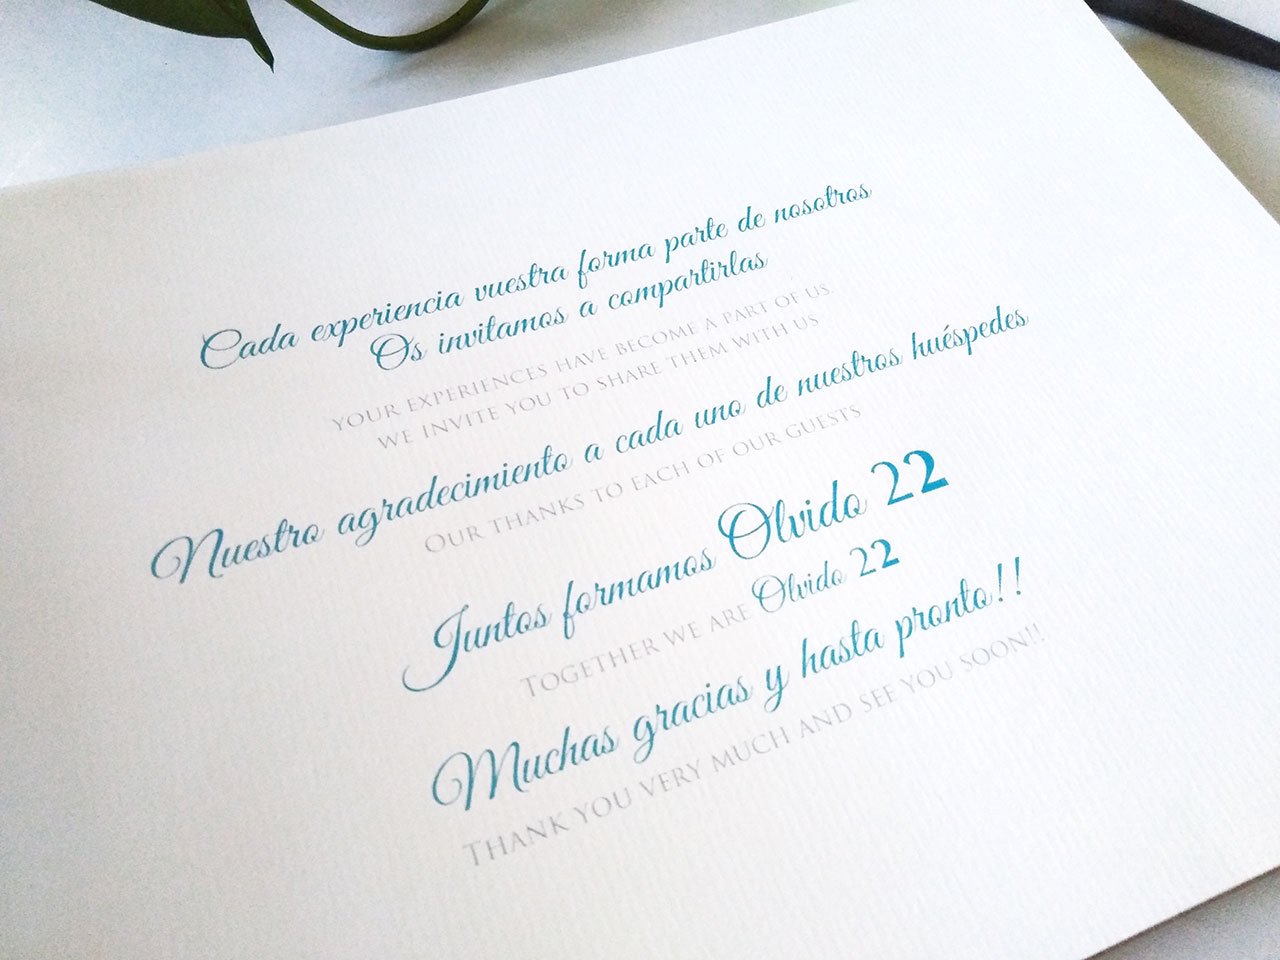 Cada experiencia vuestra forma parte de nosotros
Os invitamos a compartirlas
YOUR EXPERIENCES HAVE BECOME A PART OF US.
WE INVITE YOU TO SHARE THEM WITH US
Nuestro agradecimiento a cada uno de nuestros huéspedes
OUR THANKS TO EACH OF OUR GUESTS
Juntos formamos Olvido 22
TOGETHER WE ARE Olvido 22
Muchas gracias y hasta pronto!!
THANK YOU VERY MUCH AND SEE YOU SOON!!